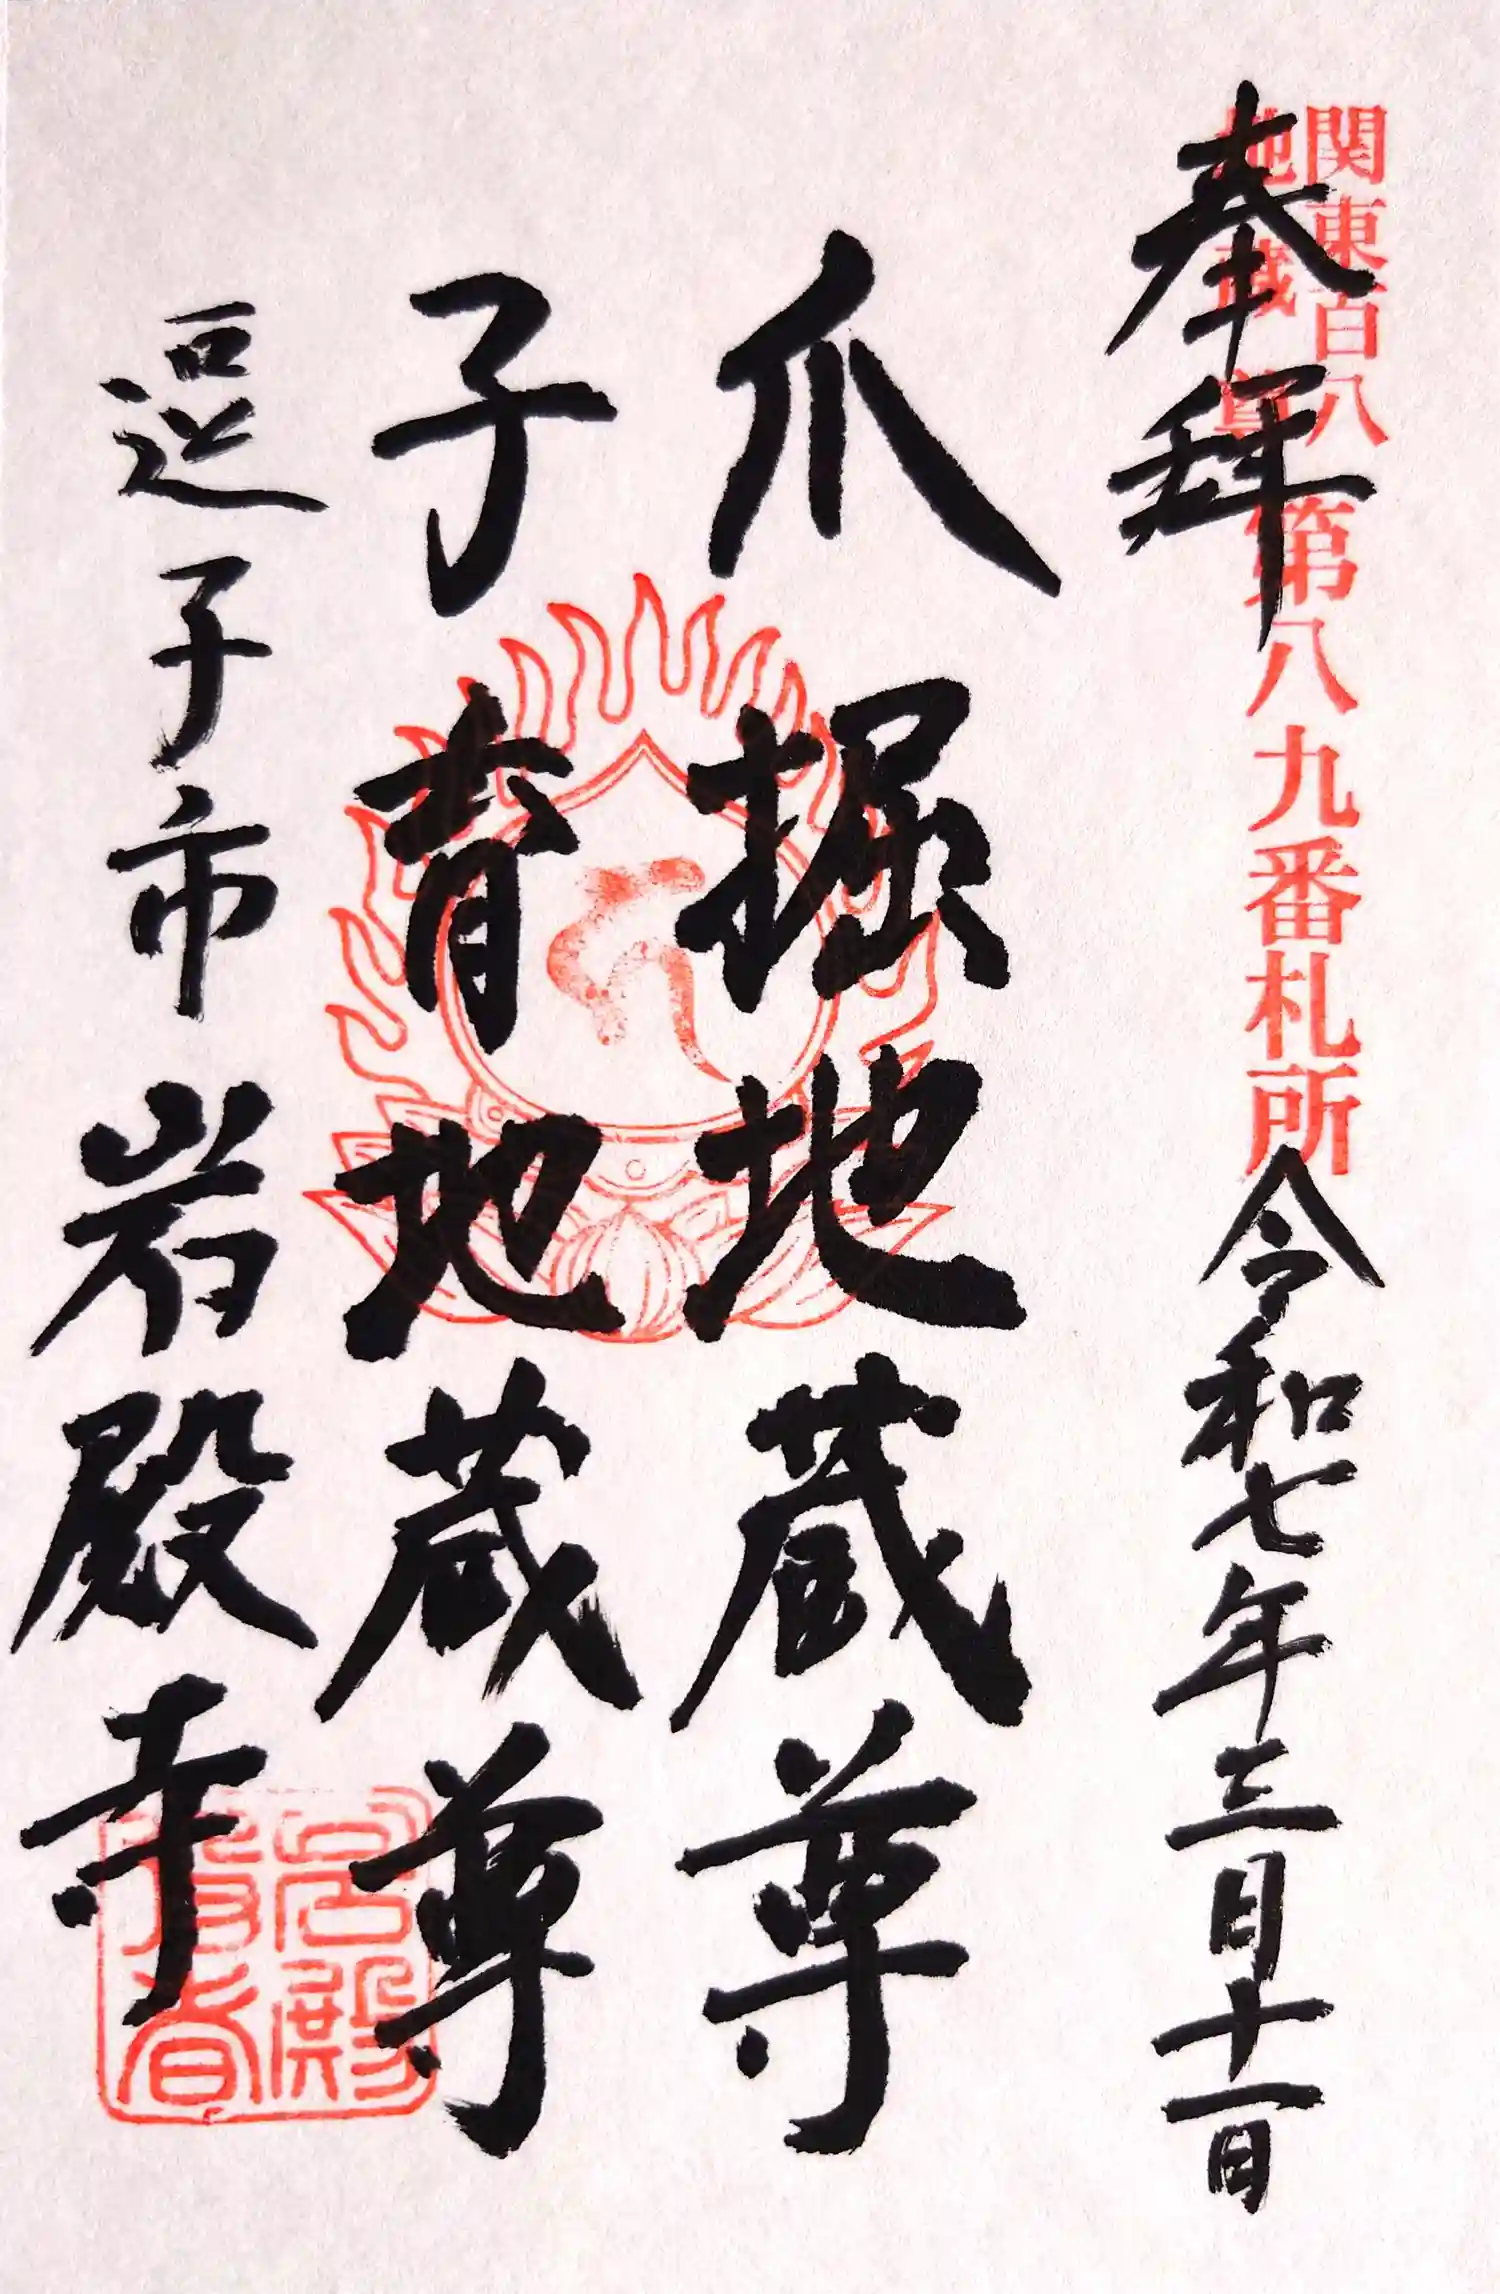 関東百八
地蔵尊
第八九番札所
奉拝
令和七年三月十一日
爪掘地蔵尊
子育地蔵尊
逗子市
岩殿寺